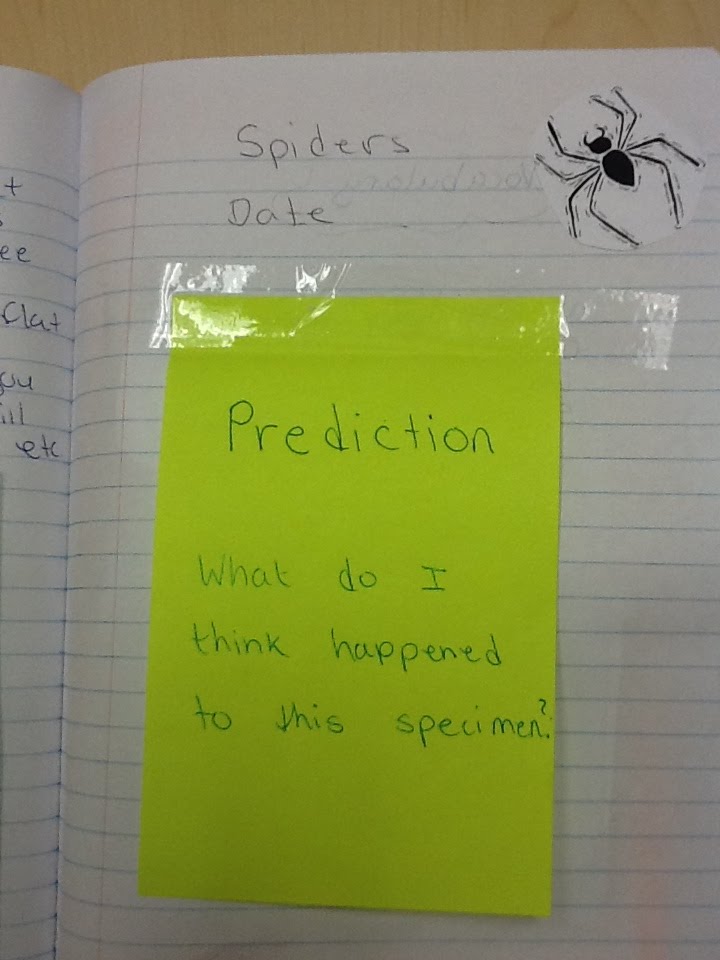 t
ee
flat
ill
etc
Spiders
Vocabulary
Date
Prediction
What do I
think happened
to this specimen?